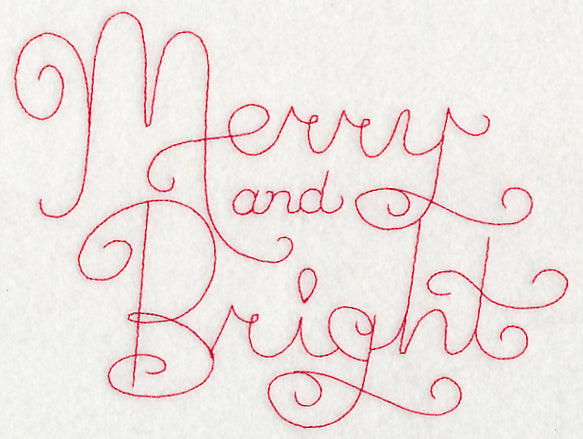 Merry
and
Bright